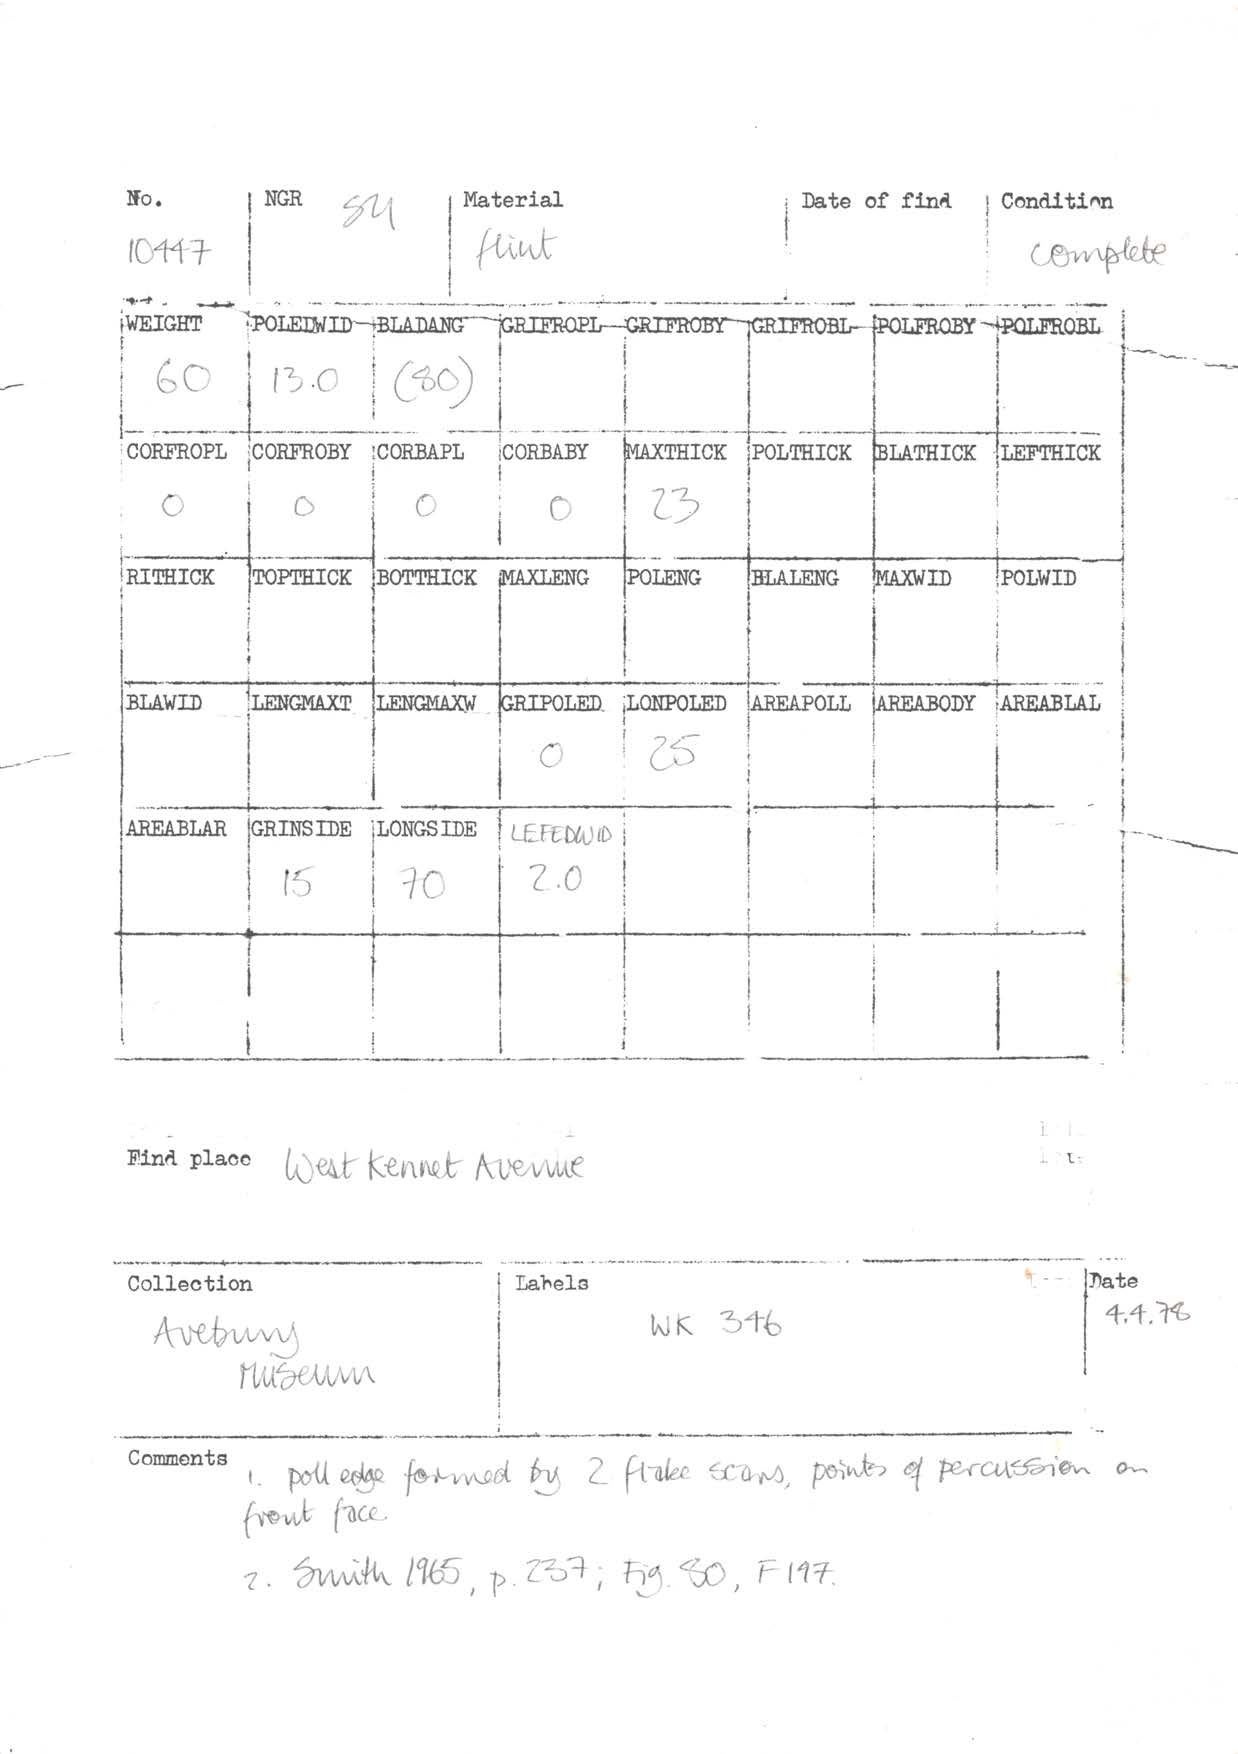 No. NGR SU Material Date of find Condition
10447 flint complete
WEIGHT POLEDWID BLADANG GRIFROPL GRIFROBY GRIFROBL POLFROBY POLFROBL
60 13.0 (80)
CORFROPL CORFROBY CORBAPL CORBABY MAXTHICK POLTHICK BLATHICK LEFTHICK
0 0 0 0 23
RITHICK TOPTHICK BOTTHICK MAXLENG POLENG BLALENG MAXWID POLWID
BLAWID LENGMAXT LENGMAXW GRIPOLED LONPOLED AREAPOLL AREABODY AREABLAL
0 25
AREABLAR GRINSIDE LONGSIDE LEFEDWID
15 70 2.0
Find place West Kennet Avenue
Collection Labels Date
Avebury WK 346 4.4.78
Museum
Comments 1. poll edge formed by 2 flake scars, points of percussion on
front face
2. Smith 1965, p. 237; Fig. 80, F197.